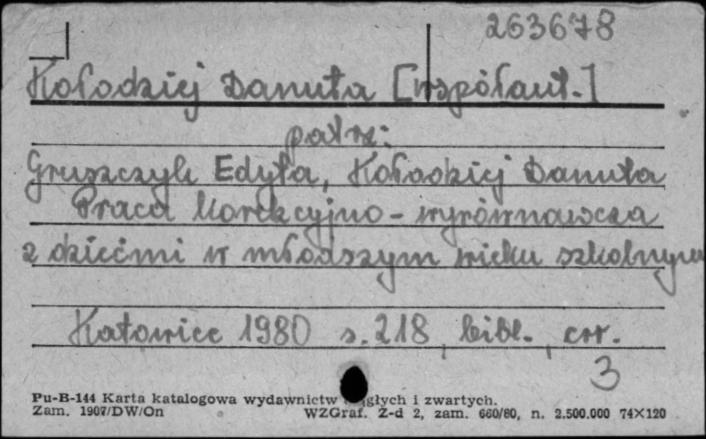 263678
Kołodziej Danuta [współaut.]
patrz:
Gruszczyk Edyta, Kołodziej Danuta
Praca korekcyjno-wyrównawcza
z dziećmi w młodszym wieku szkolnym
Katowice 1980 s. 218, bibl., err.
3
Pu-B-144 Karta katalogowa wydawnictw ciągłych i zwartych.
Zam. 1907/DW/On WZGraf. Z-d 2, zam. 660/80, n. 2.500.000 74×120